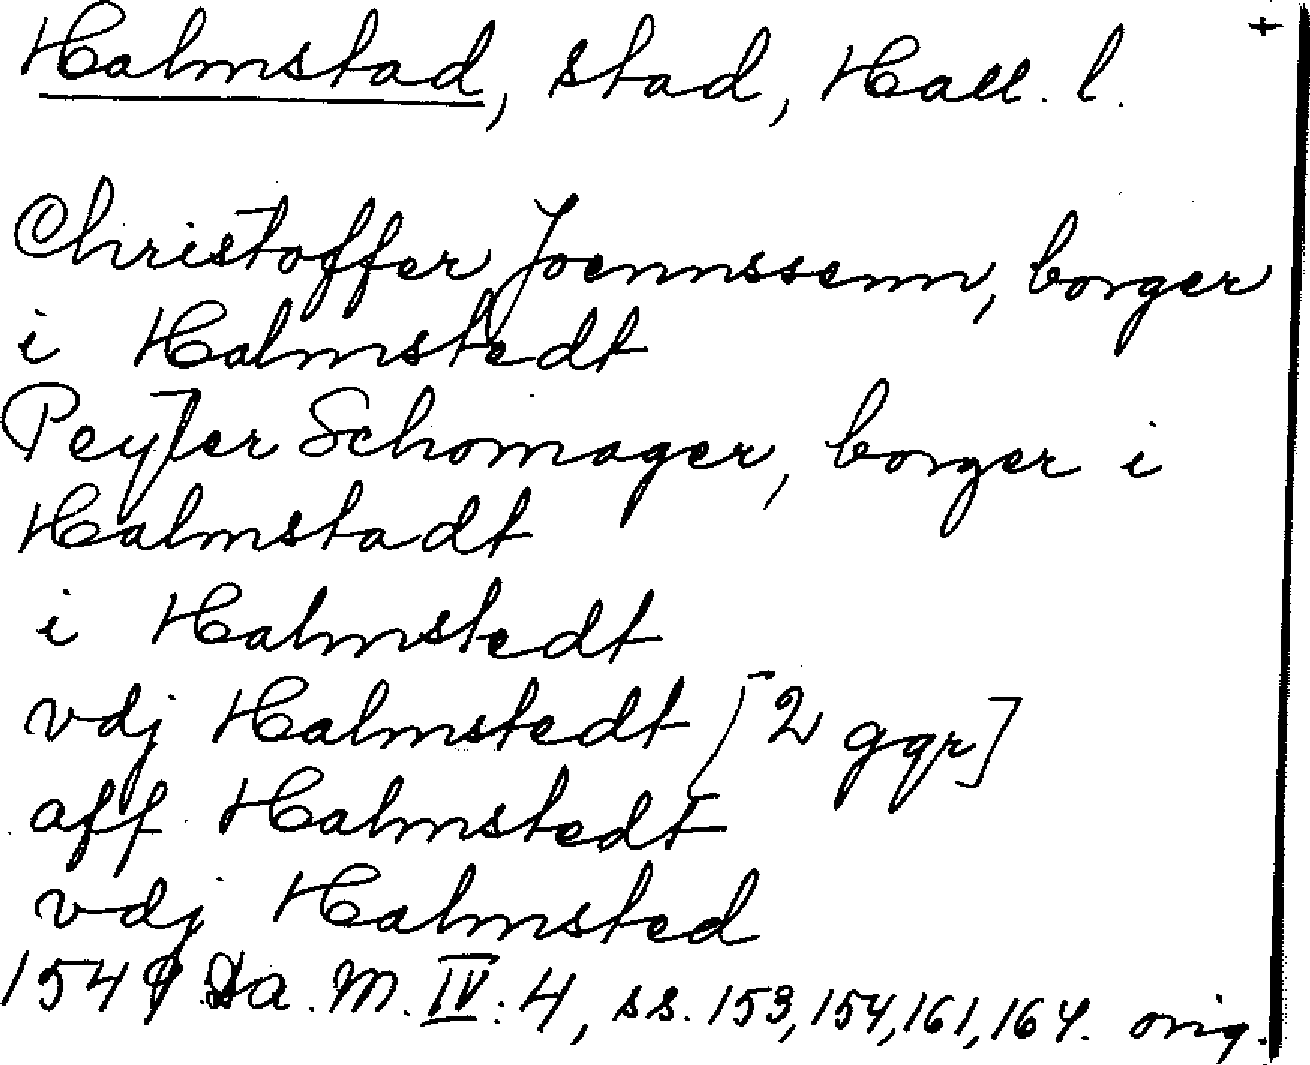 Halmstad, stad, Hall. l. +
Christoffer Joennssenn, borger
i Halmstedt
Peyter Schomager, borger i
Halmstadt
i Halmstedt
vdj Halmstedt [2 ggr]
aff Halmstedt
vdj Halmsted
1549 Da. M. IV: 4, ss. 153, 154, 161, 164. orig.